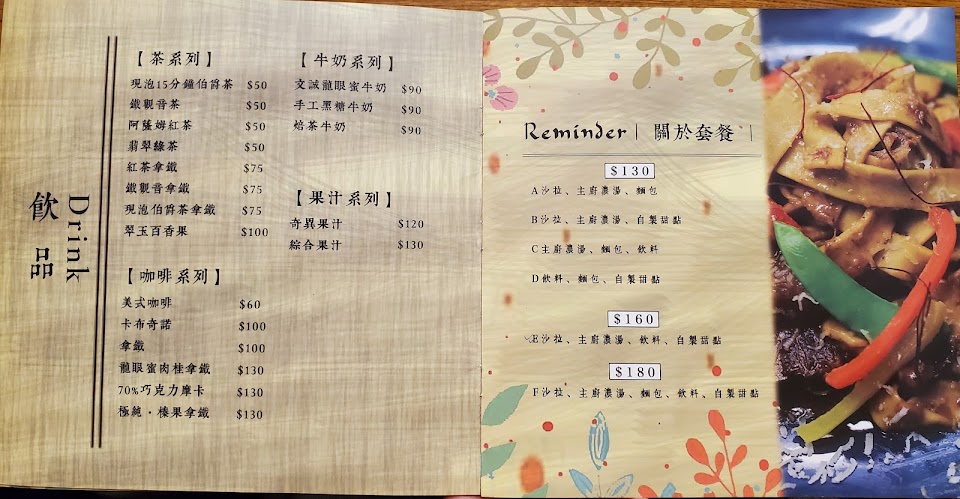 Drink
飲品
【茶系列】
現泡15分鐘伯爵茶 $50
鐵觀音茶 $50
阿薩姆紅茶 $50
翡翠綠茶 $50
紅茶拿鐵 $75
鐵觀音拿鐵 $75
現泡伯爵茶拿鐵 $75
翠玉百香果 $100
【咖啡系列】
美式咖啡 $60
卡布奇諾 $100
拿鐵 $100
龍眼蜜肉桂拿鐵 $130
70%巧克力摩卡 $130
極純·榛果拿鐵 $130
【牛奶系列】
文誠龍眼蜜牛奶 $90
手工黑糖牛奶 $90
焙茶牛奶 $90
【果汁系列】
奇異果汁 $120
綜合果汁 $130
Reminder | 關於套餐 |
$130
A沙拉、主廚濃湯、麵包
B沙拉、主廚濃湯、自製甜點
C主廚濃湯、麵包、飲料
D飲料、麵包、自製甜點
$160
E沙拉、主廚濃湯、飲料、自製甜點
$180
F沙拉、主廚濃湯、麵包、飲料、自製甜點